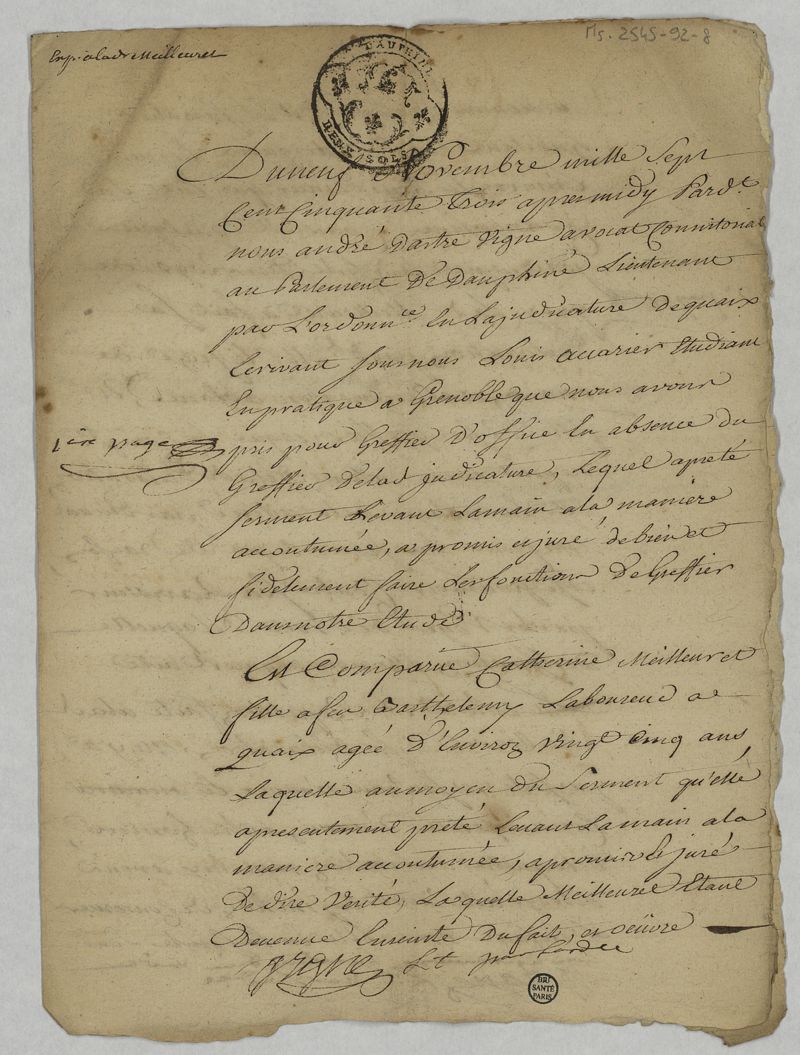 Ms. 2545-92-8
Exp. a lad. Meilleuret
DAUPHINÉ
DEUX SOLS
Du neuf Novembre mille Sept
Cent Cinquante Trois apres midy Pard.t
nous andré Dastre Vigne avocat Consistorial
au Parlement De Dauphiné Lieutenant
par L'ordonn.ce En La judicature De quaix
Ecrivant sous nous Louis accarier Etudiant
En pratique a Grenoble que nous avons
1ère page
pris pour Greffier D'office En absence du
Greffier De lad. judicature, Lequel a preté
serment Levant La main a la maniere
accoutumée, a promis et juré de bien et
fidelement faire Les fonctions De Greffier
Dans notre Etude
Est Comparüe Catherine Meilleuret
fille a feu Barthelemy Laboureur a
quaix agée D'Environ Vingt Cinq ans,
Laquelle au moyen du Serment qu'elle
a presentement preté Levant La main a la
maniere accoutumée, a promis et juré
De dire Verité, La quelle Meilleuret Etant
Devenue Enceinte Du fait, et oeüvre
Vigne Lt par L'ord.ce
BIU
SANTÉ
PARIS